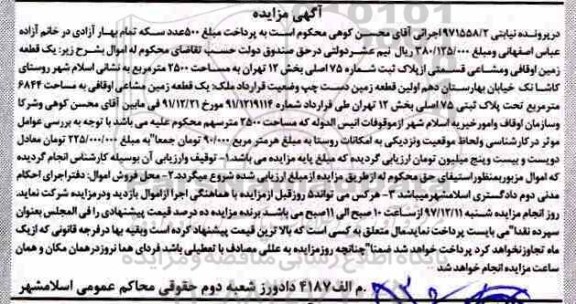 آگهی مزایده
درپرونده نیابتی ۹۷۱۵۵۸/۲ اجرائی آقای محسن کوهی محکوم است به پرداخت مبلغ ۵۰۰عدد سکه تمام بهار آزادی در حق خانم آزاده
عباس اصفهانی ومبلغ ۳۸۰/۱۳۵/۰۰۰ ریال نیم عشر دولتی درحق صندوق دولت حسب تقاضای محکوم له اموال بشرح زیر: یک قطعه
زمین اوقافی ومشاعی قسمتی ازپلاک ثبت شماره ۷۵ اصلی بخش ۱۲ تهران به مساحت ۲۵۰۰ مترمربع به نشانی اسلام شهر روستای
کاشانک خیابان بهارستان دهم اولین قطعه زمین دست چپ وضعیت قرارداد ملک: یک قطعه زمین مشاعی اوقافی به مساحت ۶۸۴۴
مترمربع تحت پلاک ثبتی ۷۵ اصلی بخش ۱۲ تهران طی قرارداد شماره ۹۱/۱۲۱۹۱۱۴ مورخ ۹۱/۱۲/۲۱ فی مابین آقای محسن کوهی وشرکا
وسازمان اوقاف وامورخیریه اسلام شهر ازموقوفات انیس الدوله که مساحت ۲۵۰۰ مترسهم محکوم علیه می باشد با توجه به بررسی عوامل
موثر در کارشناسی ولحاظ موقعیت ونزدیکی به امکانات روستا به مبلغ هرمتر مربع ۹۰/۰۰۰ تومان جمعا" به مبلغ ۲۲۵/۰۰۰/۰۰۰ تومان معادل
دویست و بیست وپنج میلیون تومان ارزیابی گردیده که مبلغ پایه مزایده می باشد.۱- توقیف وارزیابی آن بوسیله کارشناس انجام گردیده
که اموال مزبوربمنظوراستیفای حق محکوم له ازطریق مزایده ازمبلغ ارزیابی شده شروع میگردد.۲- محل فروش اموال: دفتراجرای احکام
مدنی دوم دادگستری اسلامشهرمیباشد ۳- هرکس می تواند۵ روزقبل ازمزایده با هماهنگی اجرا ازاموال بازدید ودرمزایده شرکت نماید.
روز انجام مزایده شنبه ۹۷/۱۲/۱۱ ازساعت ۱۰ صبح الی ۱۱صبح می باشد. برنده مزایده ده درصد قیمت پیشنهادی را فی المجلس بعنوان
سپرده نقدا" می بایست پرداخت نمایدمال متعلق به کسی است که بالا ترین قیمت پیشنهاد کرده است وبقیه بها درفرجه قانونی که ازیک
ماه تجاوزنخواهد کرد پرداخت خواهد شد ضمنا" چنانچه روزمزایده به عللی مصادف با تعطیلی باشد فردای همان روزدرهمان مکان و همان
ساعت مزایده انجام خواهد شد
م الف۴۱۸۷ دادورز شعبه دوم حقوقی محاکم عمومی اسلامشهر